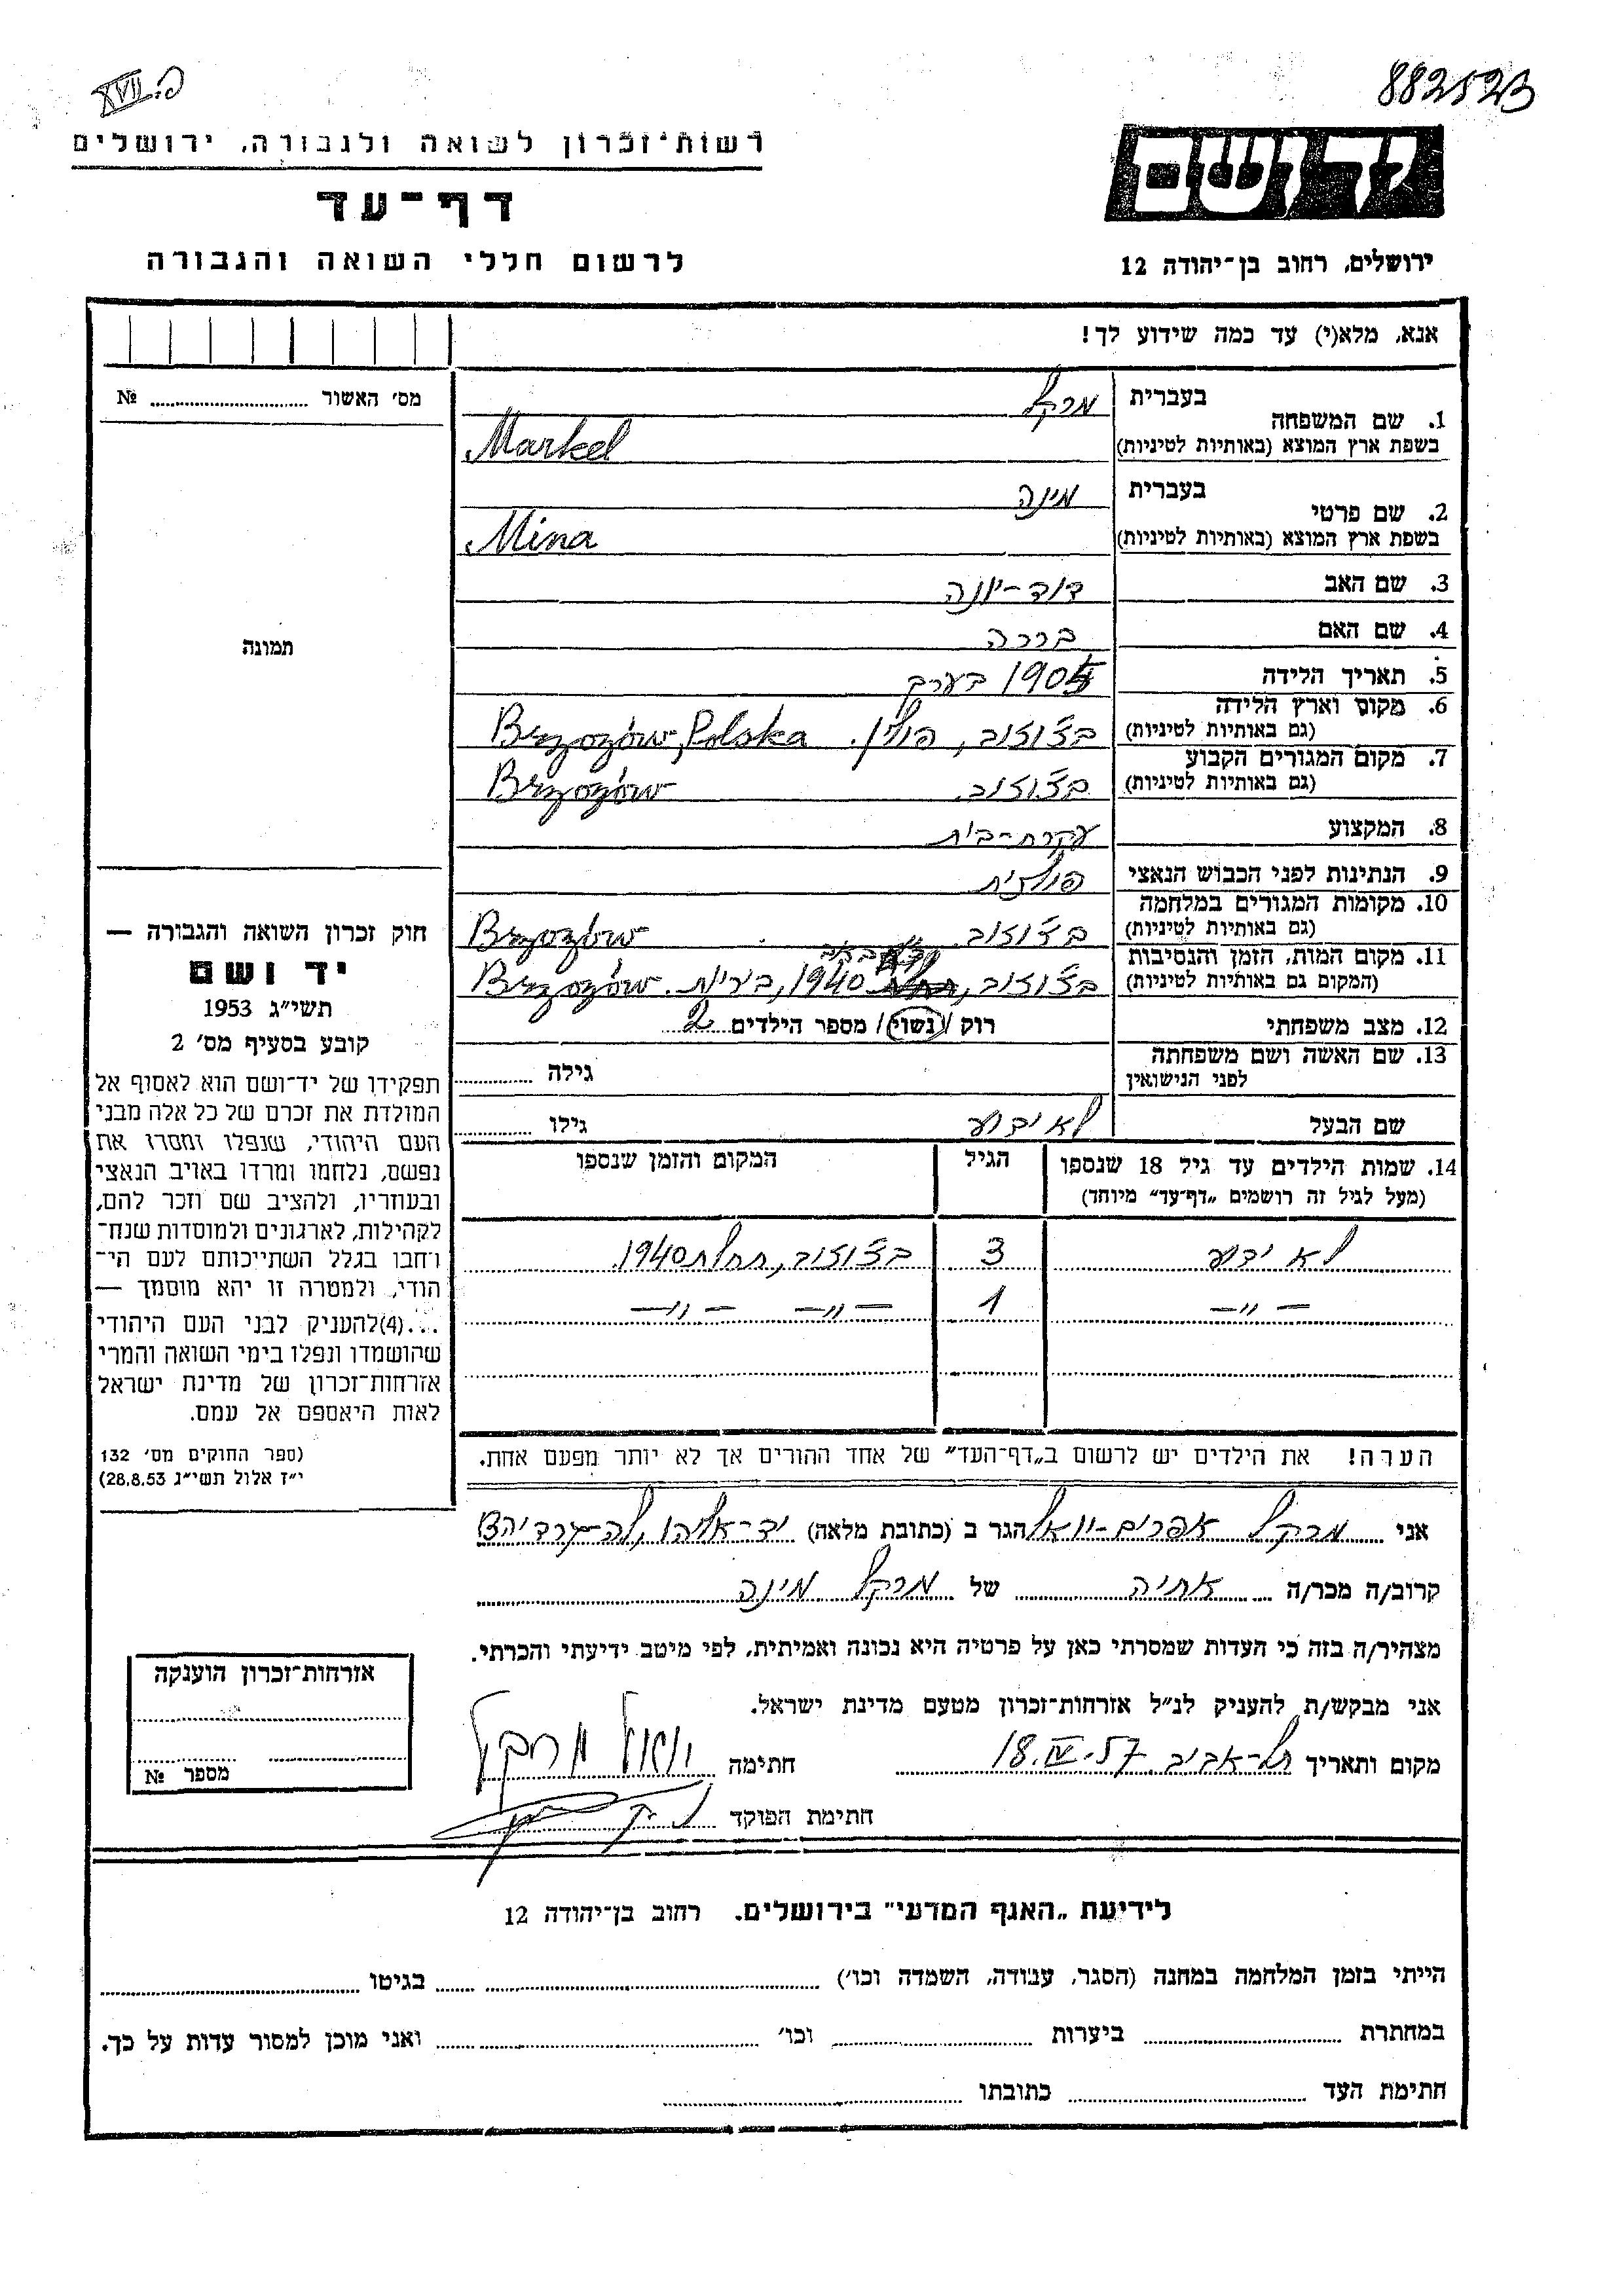 882523
פ. XVII
רשות־זכרון לשואה ולגבורה, ירושלים
יד ושם
דף־עד
לרשום חללי השואה והגבורה
ירושלים, רחוב בן־יהודה 12
אנא, מלא(י) עד כמה שידוע לך!
מס' האשור № ....................
1. שם המשפחה
בעברית מרקל
בשפת ארץ המוצא (באותיות לטיניות) Markel
2. שם פרטי
בעברית מינה
בשפת ארץ המוצא (באותיות לטיניות) Mina
3. שם האב דוד-יונה
4. שם האם ברכה
תמונה
5. תאריך הלידה 1905 בערך
6. מקום וארץ הלידה
(גם באותיות לטיניות) בז'וזוב, פולין. Brzozów, Polska
7. מקום המגורים הקבוע
(גם באותיות לטיניות) בז'וזוב. Brzozów
8. המקצוע עקרת-בית
9. הנתינות לפני הכבוש הנאצי פולנית
10. מקומות המגורים במלחמה
(גם באותיות לטיניות) בז'וזוב. Brzozów
11. מקום המות, הזמן והנסיבות
(המקום גם באותיות לטיניות) בז'וזוב, 1940, ביריות. Brzozów
12. מצב משפחתי רוק / נשוי / מספר הילדים 2
13. שם האשה ושם משפחתה
לפני הנישואין גילה
שם הבעל לא ידוע גילו
14. שמות הילדים עד גיל 18 שנספו
(מעל לגיל זה רושמים „דף־עד" מיוחד)
הגיל
המקום והזמן שנספו
לא ידוע 3 בז'וזוב, תחלת 1940.
— " — 1 — " — — " —
הערה! את הילדים יש לרשום ב„דף־העד" של אחד ההורים אך לא יותר מפעם אחת.
חוק זכרון השואה והגבורה —
יד ושם
תשי"ג 1953
קובע בסעיף מס' 2
תפקידו של יד־ושם הוא לאסוף אל
המולדת את זכרם של כל אלה מבני
העם היהודי, שנפלו ומסרו את
נפשם, נלחמו ומרדו באויב הנאצי
ובעוזריו, ולהציב שם וזכר להם,
לקהילות, לארגונים ולמוסדות שנח־
רבו בגלל השתייכותם לעם הי־
הודי, ולמטרה זו יהא מוסמך —
...(4)להעניק לבני העם היהודי
שהושמדו ונפלו בימי השואה והמרי
אזרחות־זכרון של מדינת ישראל
לאות היאספם אל עמם.
(ספר החוקים מס' 132
י"ז אלול תשי"ג 28.8.53)
אני מרקל אפרים-יואל הגר ב (כתובת מלאה) יד-אליהו, לה-גרדיה
קרוב/ה מכר/ה אחיה של מרקל מינה
מצהיר/ה בזה כי העדות שמסרתי כאן על פרטיה היא נכונה ואמיתית, לפי מיטב ידיעתי והכרתי.
אני מבקש/ת להעניק לנ"ל אזרחות־זכרון מטעם מדינת ישראל.
מקום ותאריך תל-אביב, 18.IV-57 חתימה יואל מרקל
חתימת הפוקד
אזרחות־זכרון הוענקה
מספר №
לידיעת „האגף המדעי" בירושלים. רחוב בן־יהודה 12
הייתי בזמן המלחמה במחנה (הסגר, עבודה, השמדה וכו') בגיטו
במחתרת ביערות וכו' ואני מוכן למסור עדות על כך.
חתימת העד כתובתו